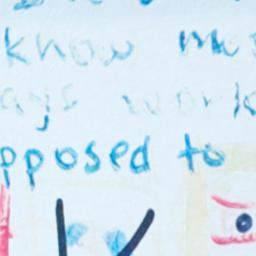 know mu
ays work
pposed to